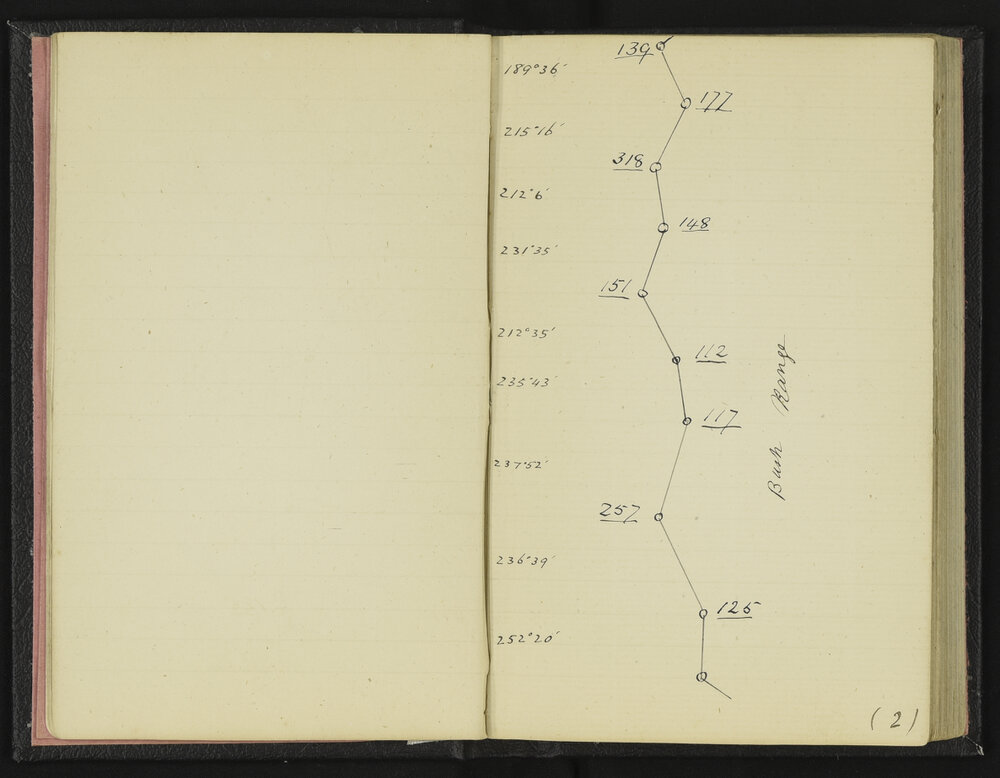 139
189°36′
177
215°16′
318
212°6′
148
231°35′
151
212°35′
112
235°43′
117
237°52′
257
236°39′
125
252°20′
Bush Range
(2)